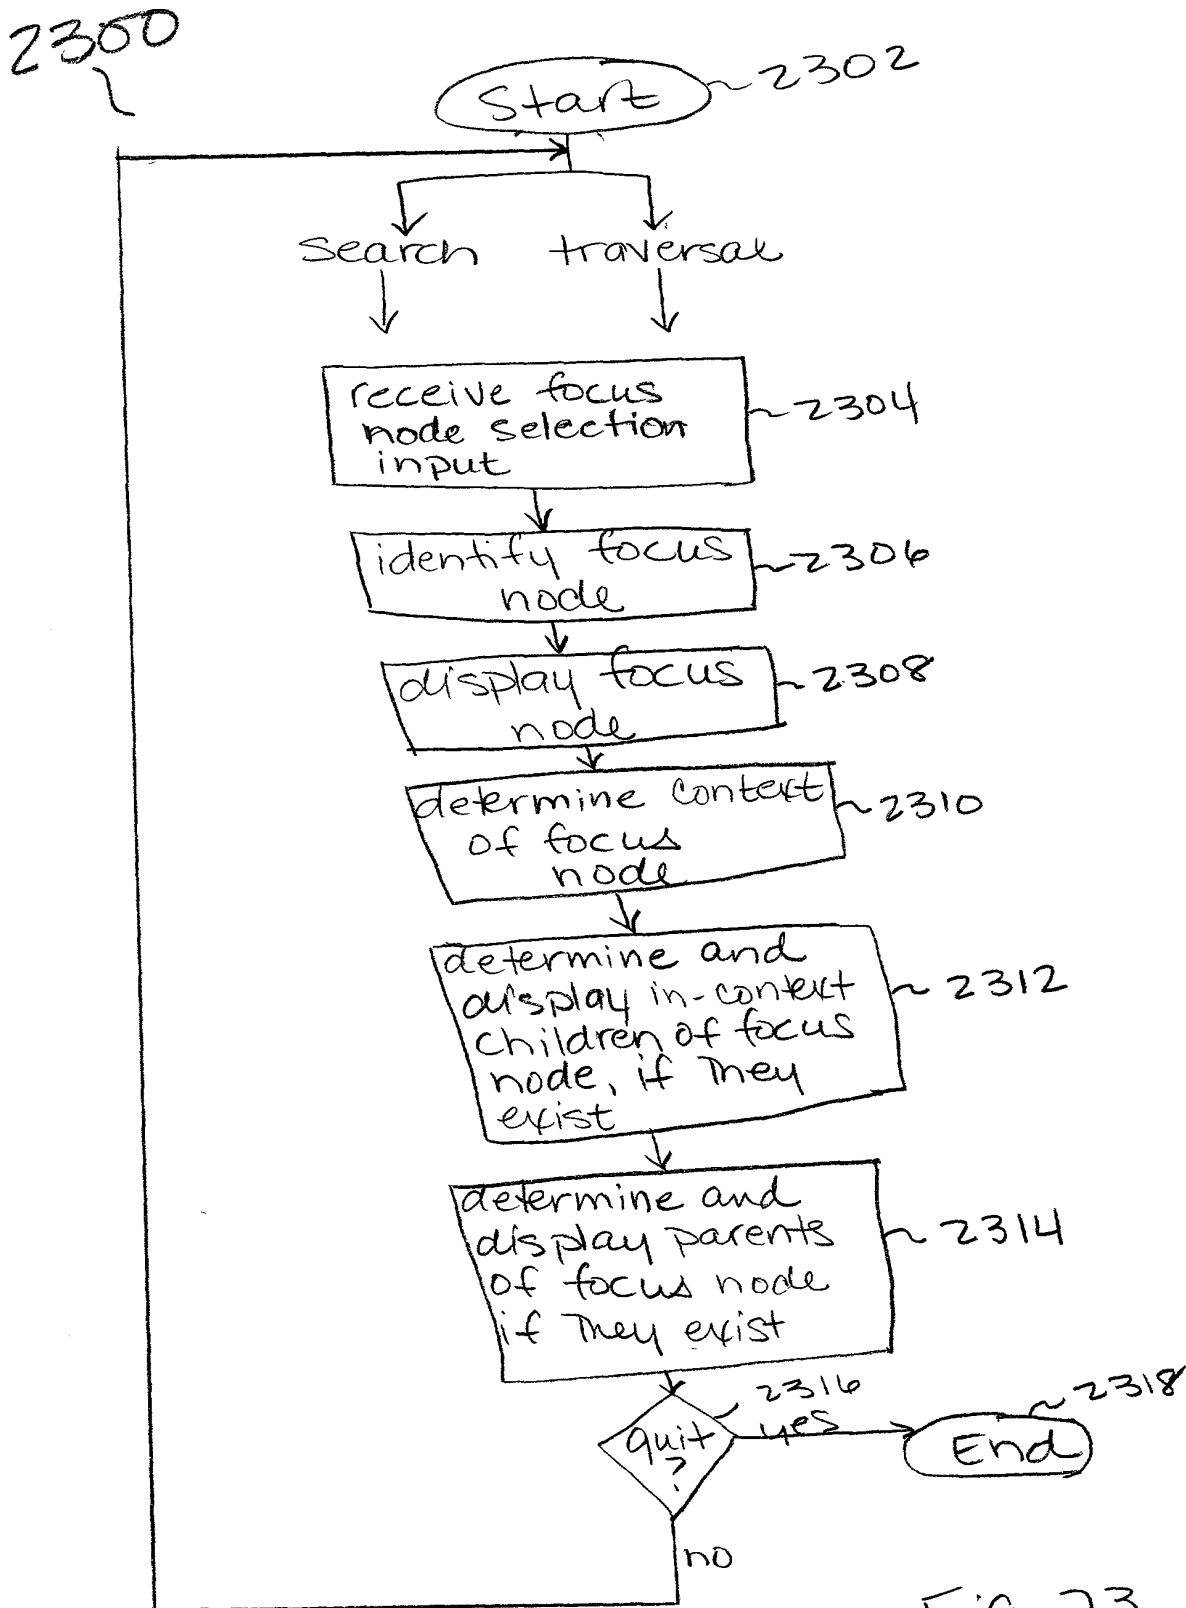 2300
Start
2302
search traversal
receive focus
node selection
input
2304
identify focus
node
2306
display focus
node
2308
determine context
of focus
node
2310
determine and
display in-context
children of focus
node, if they
exist
2312
determine and
display parents
of focus node
if they exist
2314
quit
?
2316
yes
End
2318
no
Fig. 23